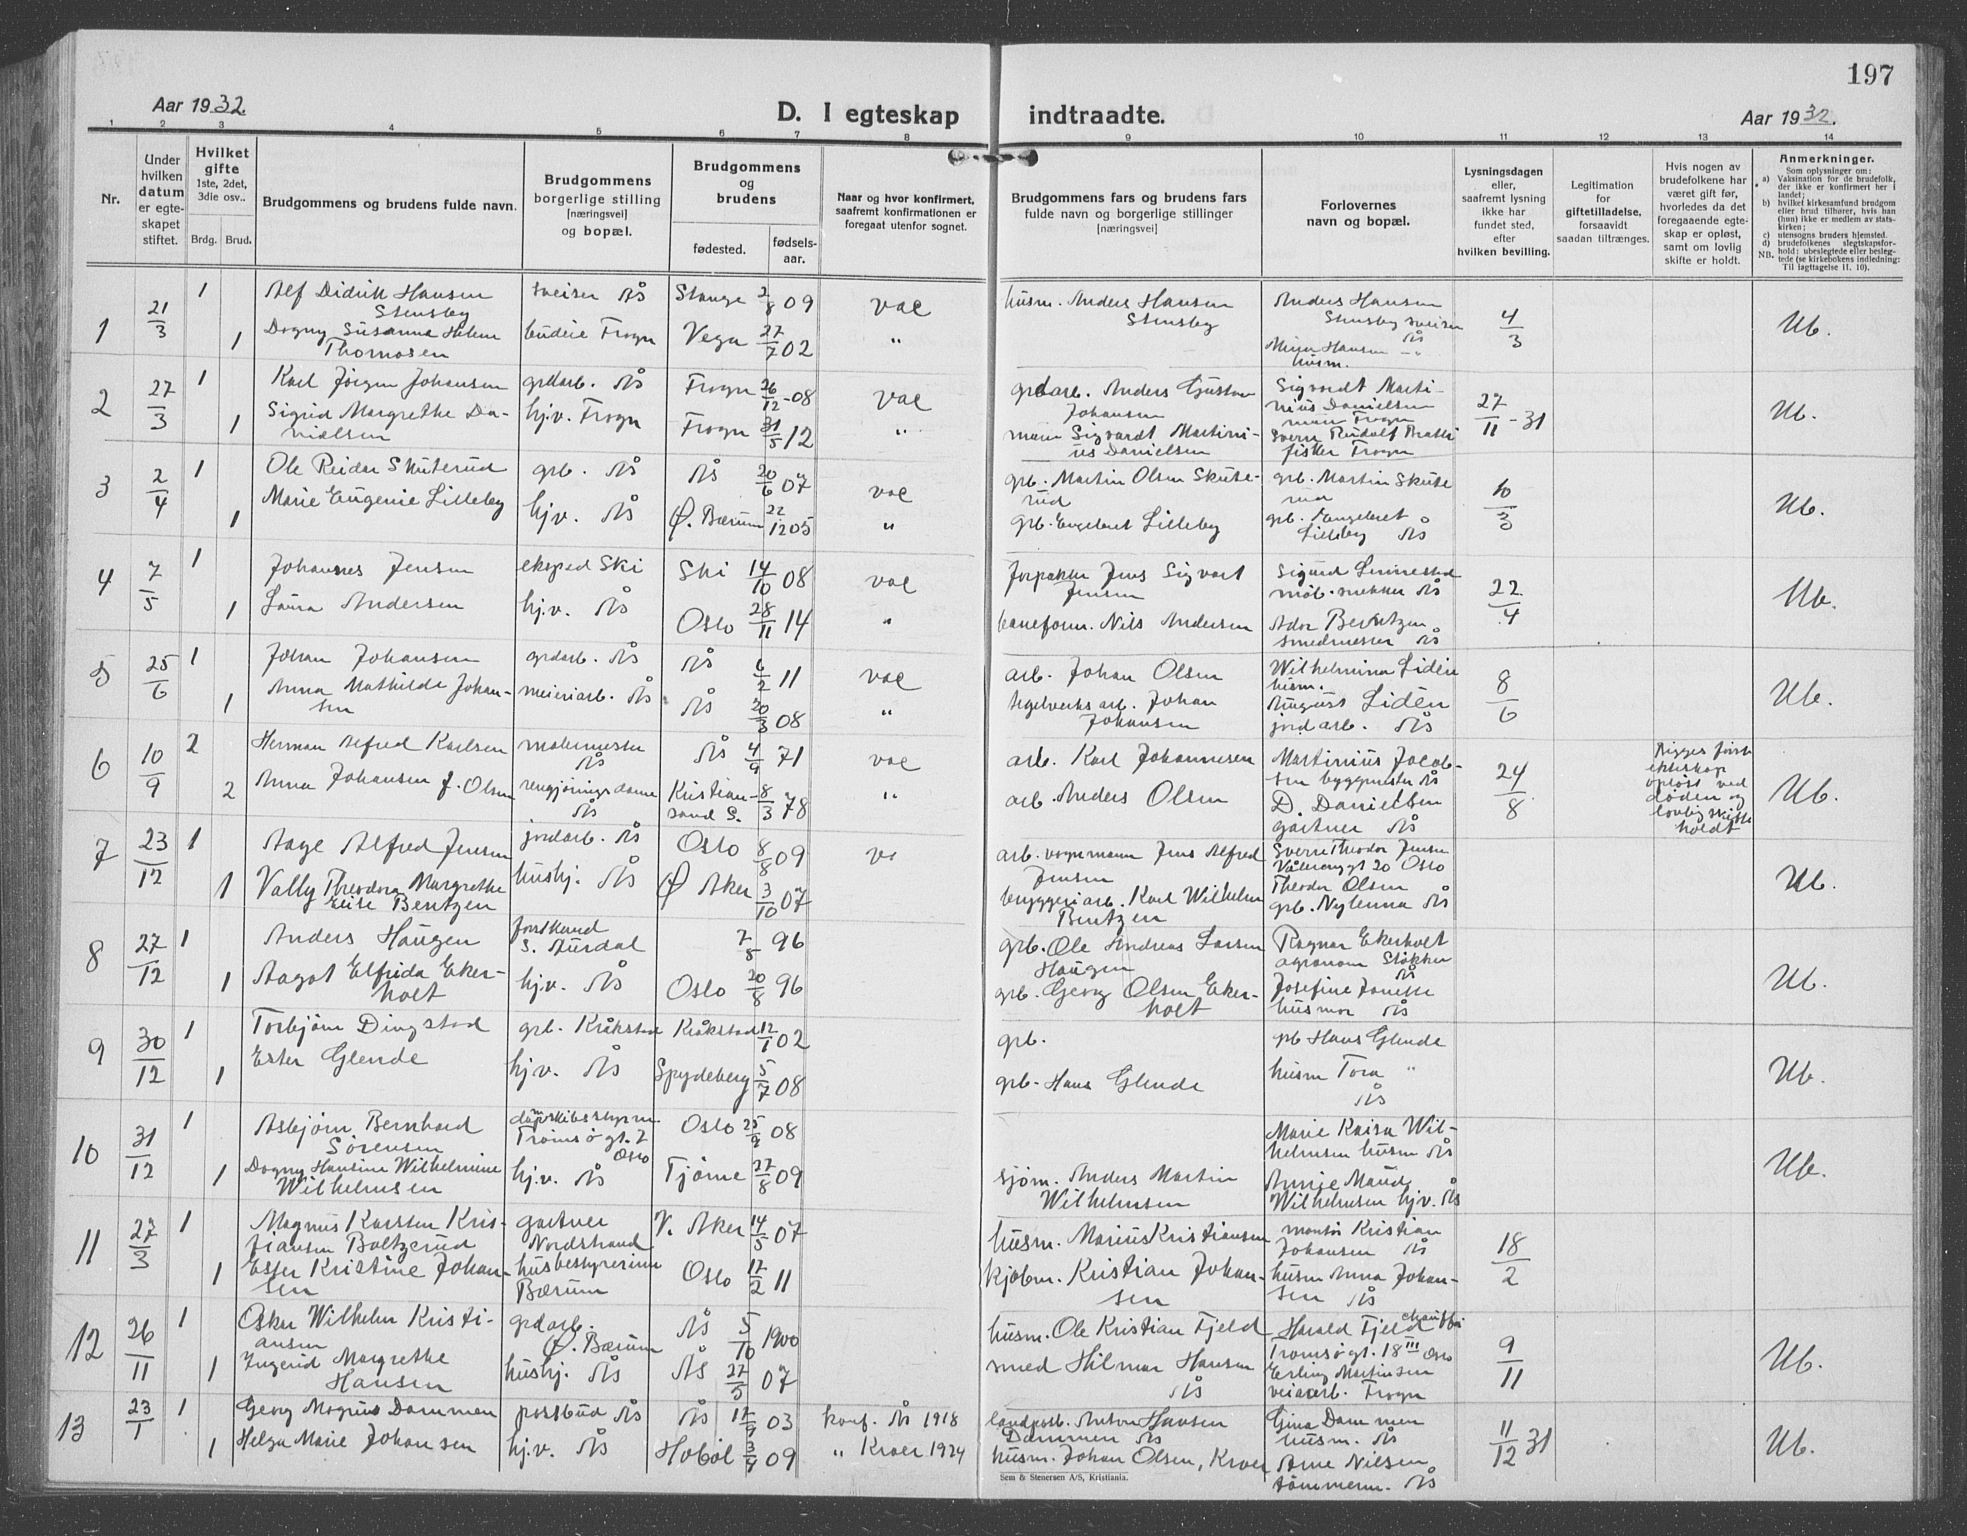 197
Aar 1932.
D. I egteskap indtraadte.
Aar 1932.
1 2 3 4 5 6 7 8 9 10 11 12 13 14
Nr.
Under hvilken datum er egteskapet stiftet.
Hvilket gifte 1ste, 2det, 3die osv..
Brdg. Brud.
Brudgommens og brudens fulde navn.
Brudgommens borgerlige stilling [næringsvei] og bopæl.
Brudgommens og brudens
fødested. fødselsaar.
Naar og hvor konfirmert, saafremt konfirmationen er foregaat utenfor sognet.
Brudgommens fars og brudens fars fulde navn og borgerlige stillinger [næringsvei]
Forlovernes navn og bopæl.
Lysningsdagen eller, saafremt lysning ikke har fundet sted, efter hvilken bevilling.
Legitimation for giftetilladelse, forsaavidt saadan tiltrænges.
Hvis nogen av brudefolkene har været gift før, hvorledes da det foregaaende egteskap er opløst, samt om lovlig skifte er holdt.
Anmerkninger.
Som oplysninger om:
a) Vaksination for de brudefolk, der ikke er konfirmert her i landet;
b) hvilket kirkesamfund brudgom eller brud tilhører, hvis han (hun) ikke er medlem av statskirken;
c) utensogns bruders hjemsted.
d) brudefolkenes slegtskapsforhold; ubeslegtede eller beslegtede (se kirkebokens indledning:
NB. Til iagttagelse II. 10).
1 21/3 1 Alf Didrik Hansen Stensby sveiser Ås Stange 2/8 09 vac husm. Anders Hansen Stensby Anders Hansen Stensby sveiser Ås 4/3 Ub.
1 Dagny Susanna Helene Thomasen budeie Frogn Vega 27/7 02 " Hansen husm.
2 27/3 1 Karl Jörgen Johansen grdarb. Ås Frogn 26/12-08 vac grdarb. Anders Gustav Johansen Sigvardt Martinius Danielsen Frogn 27/11-31 Ub.
1 Sigrid Margrethe Danielsen hj.v. Frogn Frogn 31/5 12 " Sigvardt Martinius Danielsen Sverre Rudolf fisker Frogn
3 2/4 1 Ole Reidar Skuterud grb. Ås Ås 20/6 07 vac grb. Martin Olsen Skuterud grb. Martin Skuterud 10/3 Ub.
1 Marie Eugenie Lilleby hj.v. Ås Ø. Bærum 22/12 05 " grb. Engebret Lilleby grb. Engebret Lilleby Ås
4 7/5 1 Johannes Jensen eksped Ski Ski 14/10 08 vac forpakter Jens Sigvart Jensen Sigurd Ås 22/4 Ub.
1 Laura Andersen hj.v. Ås Oslo 28/11 14 " baneform. Nils Andersen Ador Berntzen smedmester Ås
5 25/6 1 Johan Johansen grdarb. Ås Ås 6/2 11 vac arb. Johan Olsen Wilhelmina Lidén husm. 8/6 Ub.
1 Anna Mathilde Johansen meieriarb. Ås Ås 20/3 08 " teglverksarb. Johan Johansen August Lidén jordarb. Ås
6 10/9 2 Herman Alfred Karlsen malermester Ås Ås 4/9 71 vac arb. Karl Johannesen Martinius Jacobsen byggmester Ås 24/8 Begges første ekteskap opløst ved døden og lovlig skifte holdt Ub.
2 Anna Johansen f. Olsen rengjøringsdame Ås Kristiansand S. 8/3 78 " arb. Anders Olsen D. Danielsen gartner Ås
7 23/12 1 Aage Alfred Jensen jordarb. Ås Oslo 8/8 09 va arb. vognmann Jens Alfred Jensen Sverre Theodor Jensen Vålerenggt 20 Oslo Ub.
1 Vally Theodora Margrethe Elise Bentzen hushj. Ås Ø Aker 3/10 07 bryggeriarb. Karl Wilhelm Bentzen Theodor Olsen grb. Nylenna Ås
8 27/12 1 Anders Haugen forstkand S. Aurdal 7/8 96 grb. Ole Andreas Larsen Haugen Ragnar Ekerholt agronom Støkken Ås Ub.
1 Aagot Elfrida Ekerholt hj.v. Ås Oslo 20/8 96 grb. Georg Olsen Ekerholt Josefine husmor Ås
9 30/12 1 Torbjörn Dingstad grb. Kråkstad Kråkstad 12/1 02 grb. grb Hans Glende Ub.
1 Ester Glende hj.v. Ås Spydeberg 5/7 08 grb. Hans Glende husm Tora " Ås
10 31/12 1 Asbjörn Bernhard Sörensen dampskibsstyrm. Tromsøgt. 7 Oslo Oslo 25/9 08 Marie Kaisa Wilhelmsen husm Ås Ub.
1 Dagny Hansine Wilhelmine Wilhelmsen hj.v. Ås Tjöme 27/8 09 sjöm. Anders Martin Wilhelmsen Annie Maud Wilhelmsen hj.v. Ås
11 27/3 1 Magnus Karsten Kristiansen Boltzerud gartner Nordstrand V. Aker 14/5 07 husm. Marius Kristiansen montör Kristian Johansen Ås 18/2
1 Ester Kristine Johansen husbestyrerinne Bærum Oslo 17/2 11 kjöbm. Kristian Johansen husm Anna Johansen Ås
12 26/11 1 Oskar Wilhelm Kristiansen grdarb. Ø. Bærum Ås 5/10 1900 husm. Ole Kristian Fjeld Harald Fjeld Tromsøgt. 18 III Oslo 9/11 Ub.
1 Ingerid Margrethe Hansen hushj. Ås Ås 27/5 07 smed Hilmar Hansen Ås Erling Martinsen veiarb. Frogn
13 23/1 1 Georg Magnus Dammen postbud Ås Ås 17/9 03 konf. Ås 1918 landpostb. Anton Hansen Dammen Ås Gina Dammen husm. Ås 11/12 31 Ub.
1 Helga Marie Johansen hj.v. Ås Hobøl 3/7 09 " Kroer 1924 husm. Johan Olsen, Kroer Arne Nilsen tömmerm. Ås
Sem & Stenersen A/S, Kristiania.